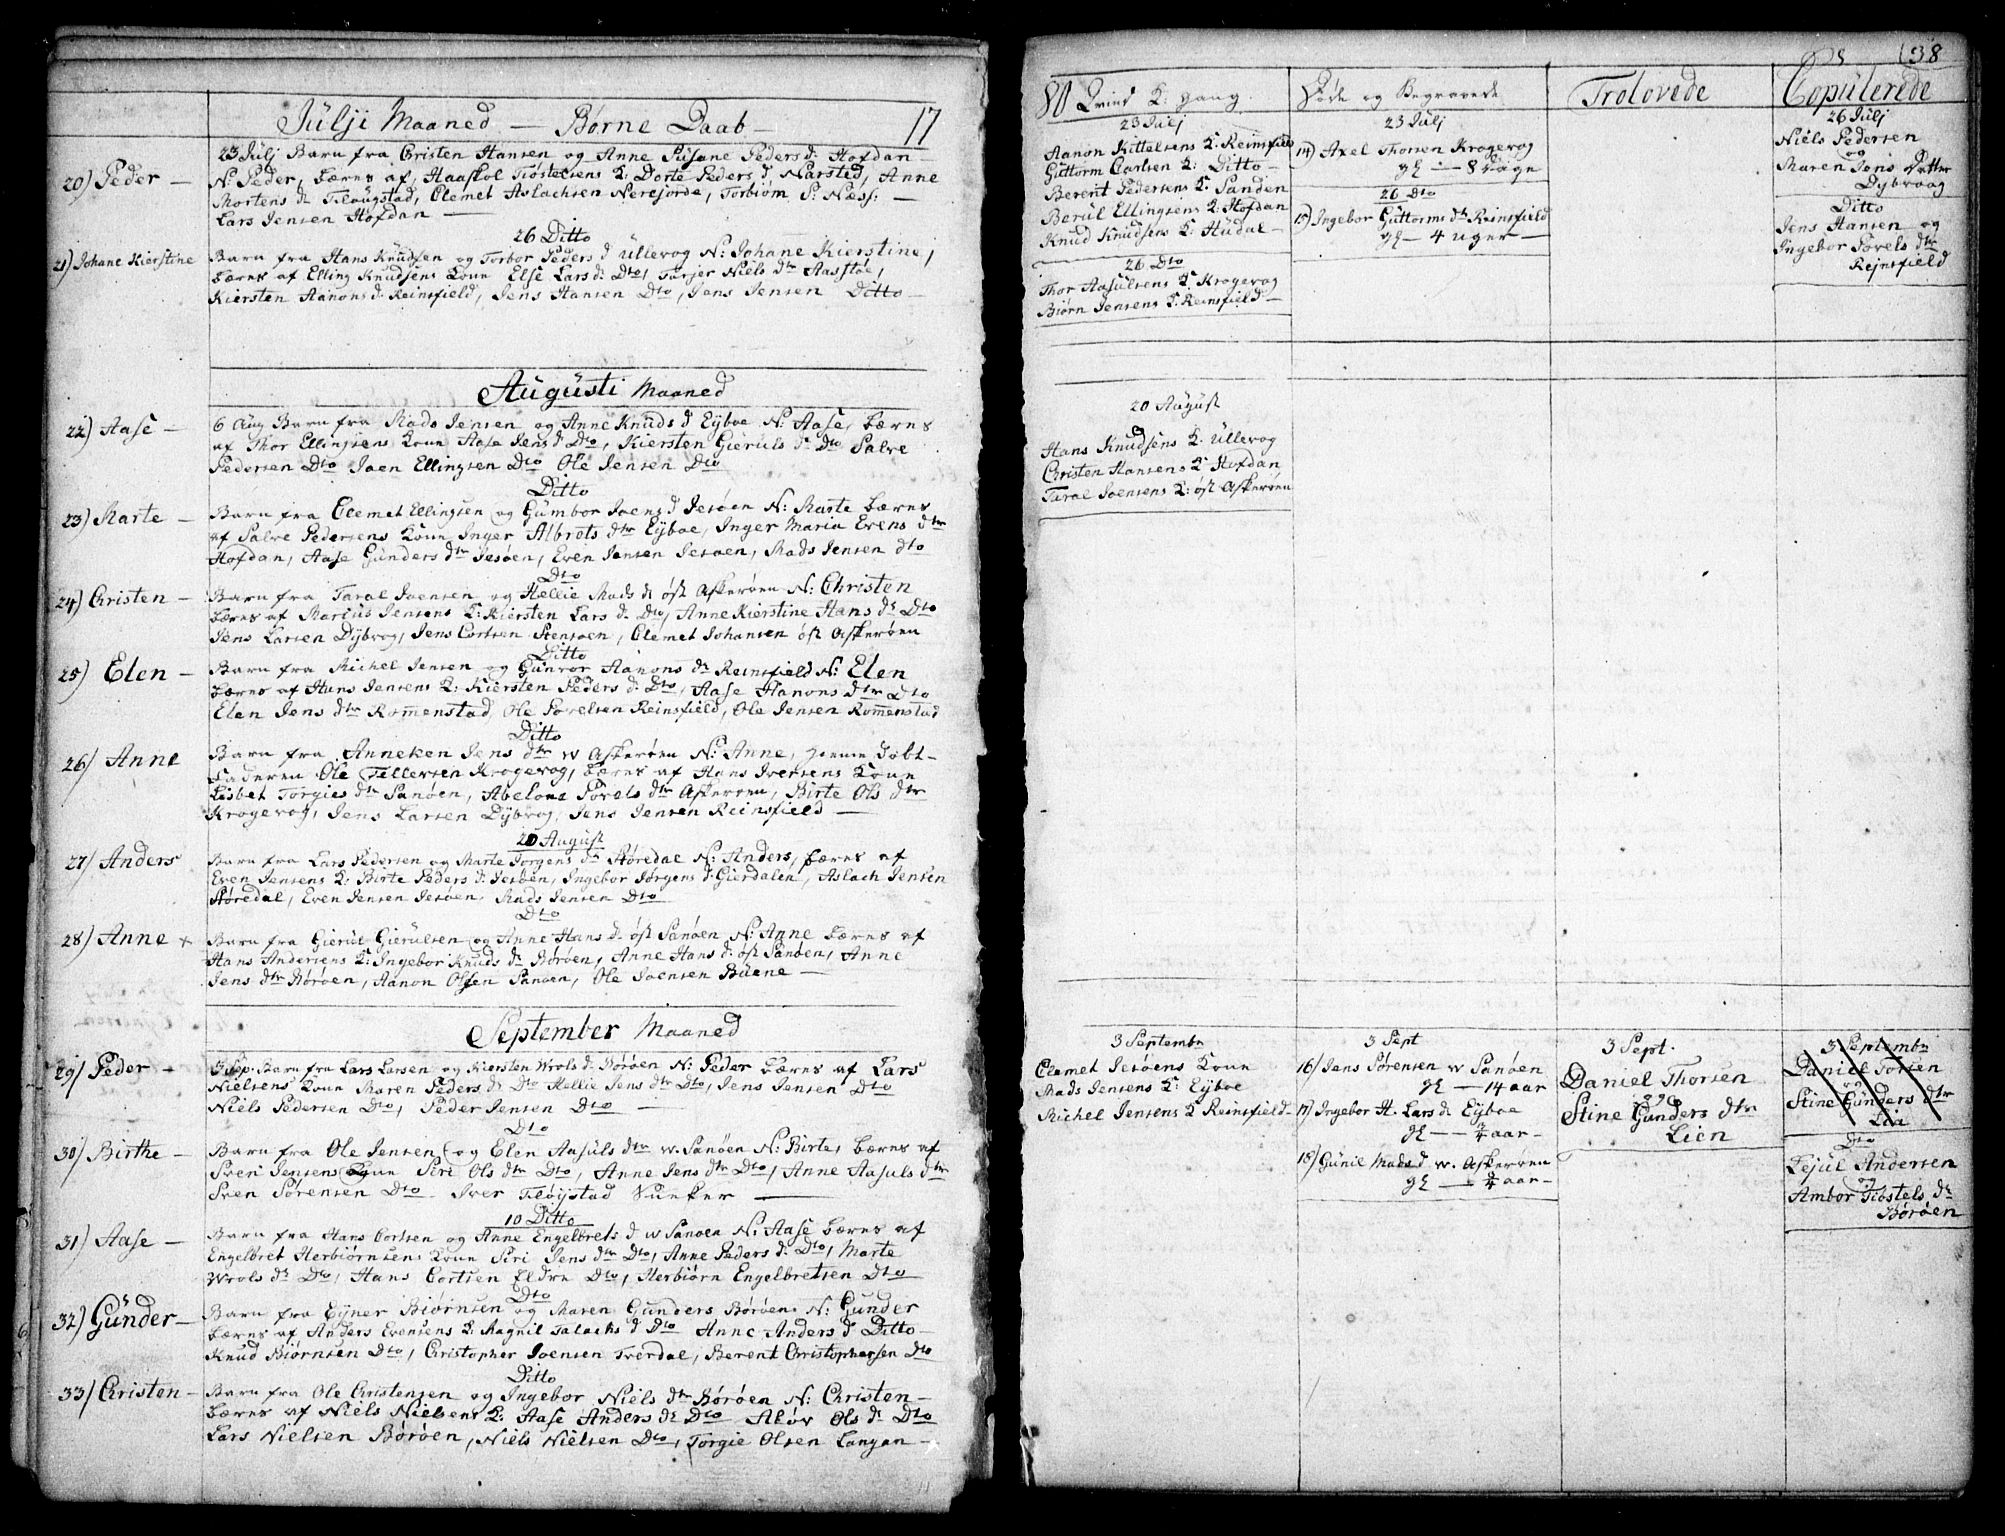 Julji Maaned — Børne Daab — 17
20) Peder —
23 Julj Barn fra Christen Hansen og Anne Susane Peders d: Hofdan —
N: Peder, bæres af, Haaskol Tiøstelsens K: Dorte Peders d Narsted, Anne
Mortens d: Tlougstad, Clemet Aslachsen Neresjorde, Torbiørn P: Næss: —
Lars Jensen Hofdan —
26 Ditto
21) Johane Kierstine
Barn fra Hans Knudsen og Torbor Peders d Ullevog N: Johane Kierstine,
bæres af Elling Knudsens Koun Else Lars d: Dto, Torjer Niels dtr Aastøe,
Kiersten Aanons d: Reinsfield, Jens Hansen Dto, Jens Jensen Ditto —
Augusti Maaned
22) Aase —
6 Aug Barn fra Mads Jensen og Anne Knuds d Eyboe N: Aase, bæres
af Thor Ellingsens Koun Aase Jens d Dto, Kiersten Gieruls d: Dto Salve
Pedersen Dto Joen Ellingsen Dto Ole Jensen Dto
Ditto
23) Marte —
Barn fra Clemet Ellingsen og Gumbor Joens d Jesøen N: Marte bæres
af Salve Pedersens Koun Inger Albrets dtr Eyboe, Inger Maria Evens dtr
Hofdan, Aase Gunders dtr Jesøen, Even Jensen Jesøen, Mads Jensen dto
Dto
24) Christen —
Barn fra Taral Joensen og Hellie Mads d: øst Askerøen N: Christen
bæres af Marius Jensens K: Kiersten Lars d: Dto, Anne Kierstine Hans d: Dto
Jens Larsen Dybvog, Jens Cortsen Stensøen, Clemet Johansen øst Askerøen
Ditto
25) Elen —
Barn fra Michel Jensen og Gunror Aanons d: Reinsfield N: Elen
bæres af Hans Jensens K: Kiersten Peders d: Dto, Aase Hanons dtr Dto
Elen Jens dtr Romenstad, Ole Sørelsen Reinsfield, Ole Jensen Romenstad
Ditto
26) Anne
Barn fra Anneken Jens dtr w Askerøen N: Anne, hemme døbt —
Faderen Ole Tellevsen Krogevog, bæres af Hans Iversens Koun
Lisbet Torgies dtr Sanøen, Abelone Sørels dtr Askerøen, Birte Ols dtr
Krogevog, Jens Larsen Dybvog, Jens Jensen Reinsfield —
20 August
27) Anders
Barn fra Lars Pedersen og Marte Jorgens d: Støredal N: Anders, bæres af
Even Jensens K: Birte Peders d: Jesøen, Ingebor Jørgens d: Gierdalen, Aslach Jensen
Støredal, Even Jensen Jesøen, Mads Jensen Dto
Dto
28) Anne +
Barn fra Gierul Gierulsen og Anne Hans d: øst Sanøen N: Anne bæres af
Hans Andersens K: Ingebor Knuds d: Børøen, Anne Hans d: øst Sanøen, Anne
Jens dtr Børøen, Aanon Olsen Sanøen, Ole Joensen Buene —
September Maaned
29) Peder —
3 Sep. Barn fra Lars Larsen og Kiersten Wrols d: Børøen N: Peder bæres af Lars
Nielsens Koun Maren Peders d: Dto Hellie Jens dtr Dto, Jens Jensen Dto
Niels Pedersen Dto, Peder Jensen Dto —
Dto
30) Birthe —
Barn fra Ole Jensen og Elen Aasuls dtr w. Sanøen N: Birte, bæres af
Sven Jensens Koun Siri Ols dtr Dto, Anne Jens dtr Dto, Anne Aasuls dtr
Sven Sørensen Dto Iver Tløystad Vunker —
10 Ditto
31) Aase —
Barn fra Hans Cortsen og Anne Engelbrets d w Sanøen N: Aase bæres af
Engelbret Herbiørnsens Koun Siri Jens dtr Dto, Anne Peders d: Dto, Marte
Wrols d: Dto, Hans Cortsen Eldre Dto, Herbiørn Engelbretsen Dto
Dto
32) Gunder —
Barn fra Eyner Biørnsen og Maren Gunders Børøen N: Gunder
bæres af Anders Evensens K: Magnil Talachs d Dto Anne Anders d Ditto —
Knud Biørnsen Dto, Christopher Joensen Tverdal, Berent Christophersen Dto
Ditto
33) Christen —
Barn fra Ole Christensen og Ingebor Niels dtr Børøen N: Christen —
bæres af Niels Nielsens K: Aase Anders d: Dto Aløv Ols d: Dto
Lars Nielsen Børøen, Niels Nielsen Dto, Torgie Olsen Langan —
38
80 Qvind K: gang.
23 Julj
Aanon Kittelsens K: Reinsfield
Guttorm Carlsen K: Ditto —
Berent Pedersens K: Sanden
Berul Ellingsens K: Hofdan
Knud Knudsens K: Hudal —
26 Dto
Thor Aasulsens K: Krogevog
Biørn Jensens K: Reinsfield —
20 August
Hans Knudsens K: Ullevog
Christen Hansens K: Hofdan
Taral Joensens K: øst Askerøen
3 Septembr
Clemet Jesøens Koun
Mads Jensens K: Eyboe
Michel Jensens K Reinsfield —
Døde og Begravede
23 Julj
14) Axel Thorsen Krogevog
gl — 8 dage
26 Dto
15) Ingebor Guttorms dtr Reinsfield
gl — 4 uger —
3 Sept
16) Jens Sørensen w Sanøen
gl — 14 aar
17) Ingebor H. Lars d: Eyboe
gl — ¾ aar —
18) Gunil Mads d w. Askerøen
gl — ¾ aar —
Trolovede
3 Sept.
Daniel Thorsen
og
Stine Gunders dtr
Lien
Copulerede
26 Julj
Niels Pedersen
og
Maren Jens Datter
Dybvaag
Ditto
Jens Hansen og
Ingebor Sørels dtr
Rejnsfield
3 Septembr
Daniel Torsen
og
Stine Gunders dtr
Lia
Dto
Tejul Andersen
og
Ambor Tiostels d:
Børøen